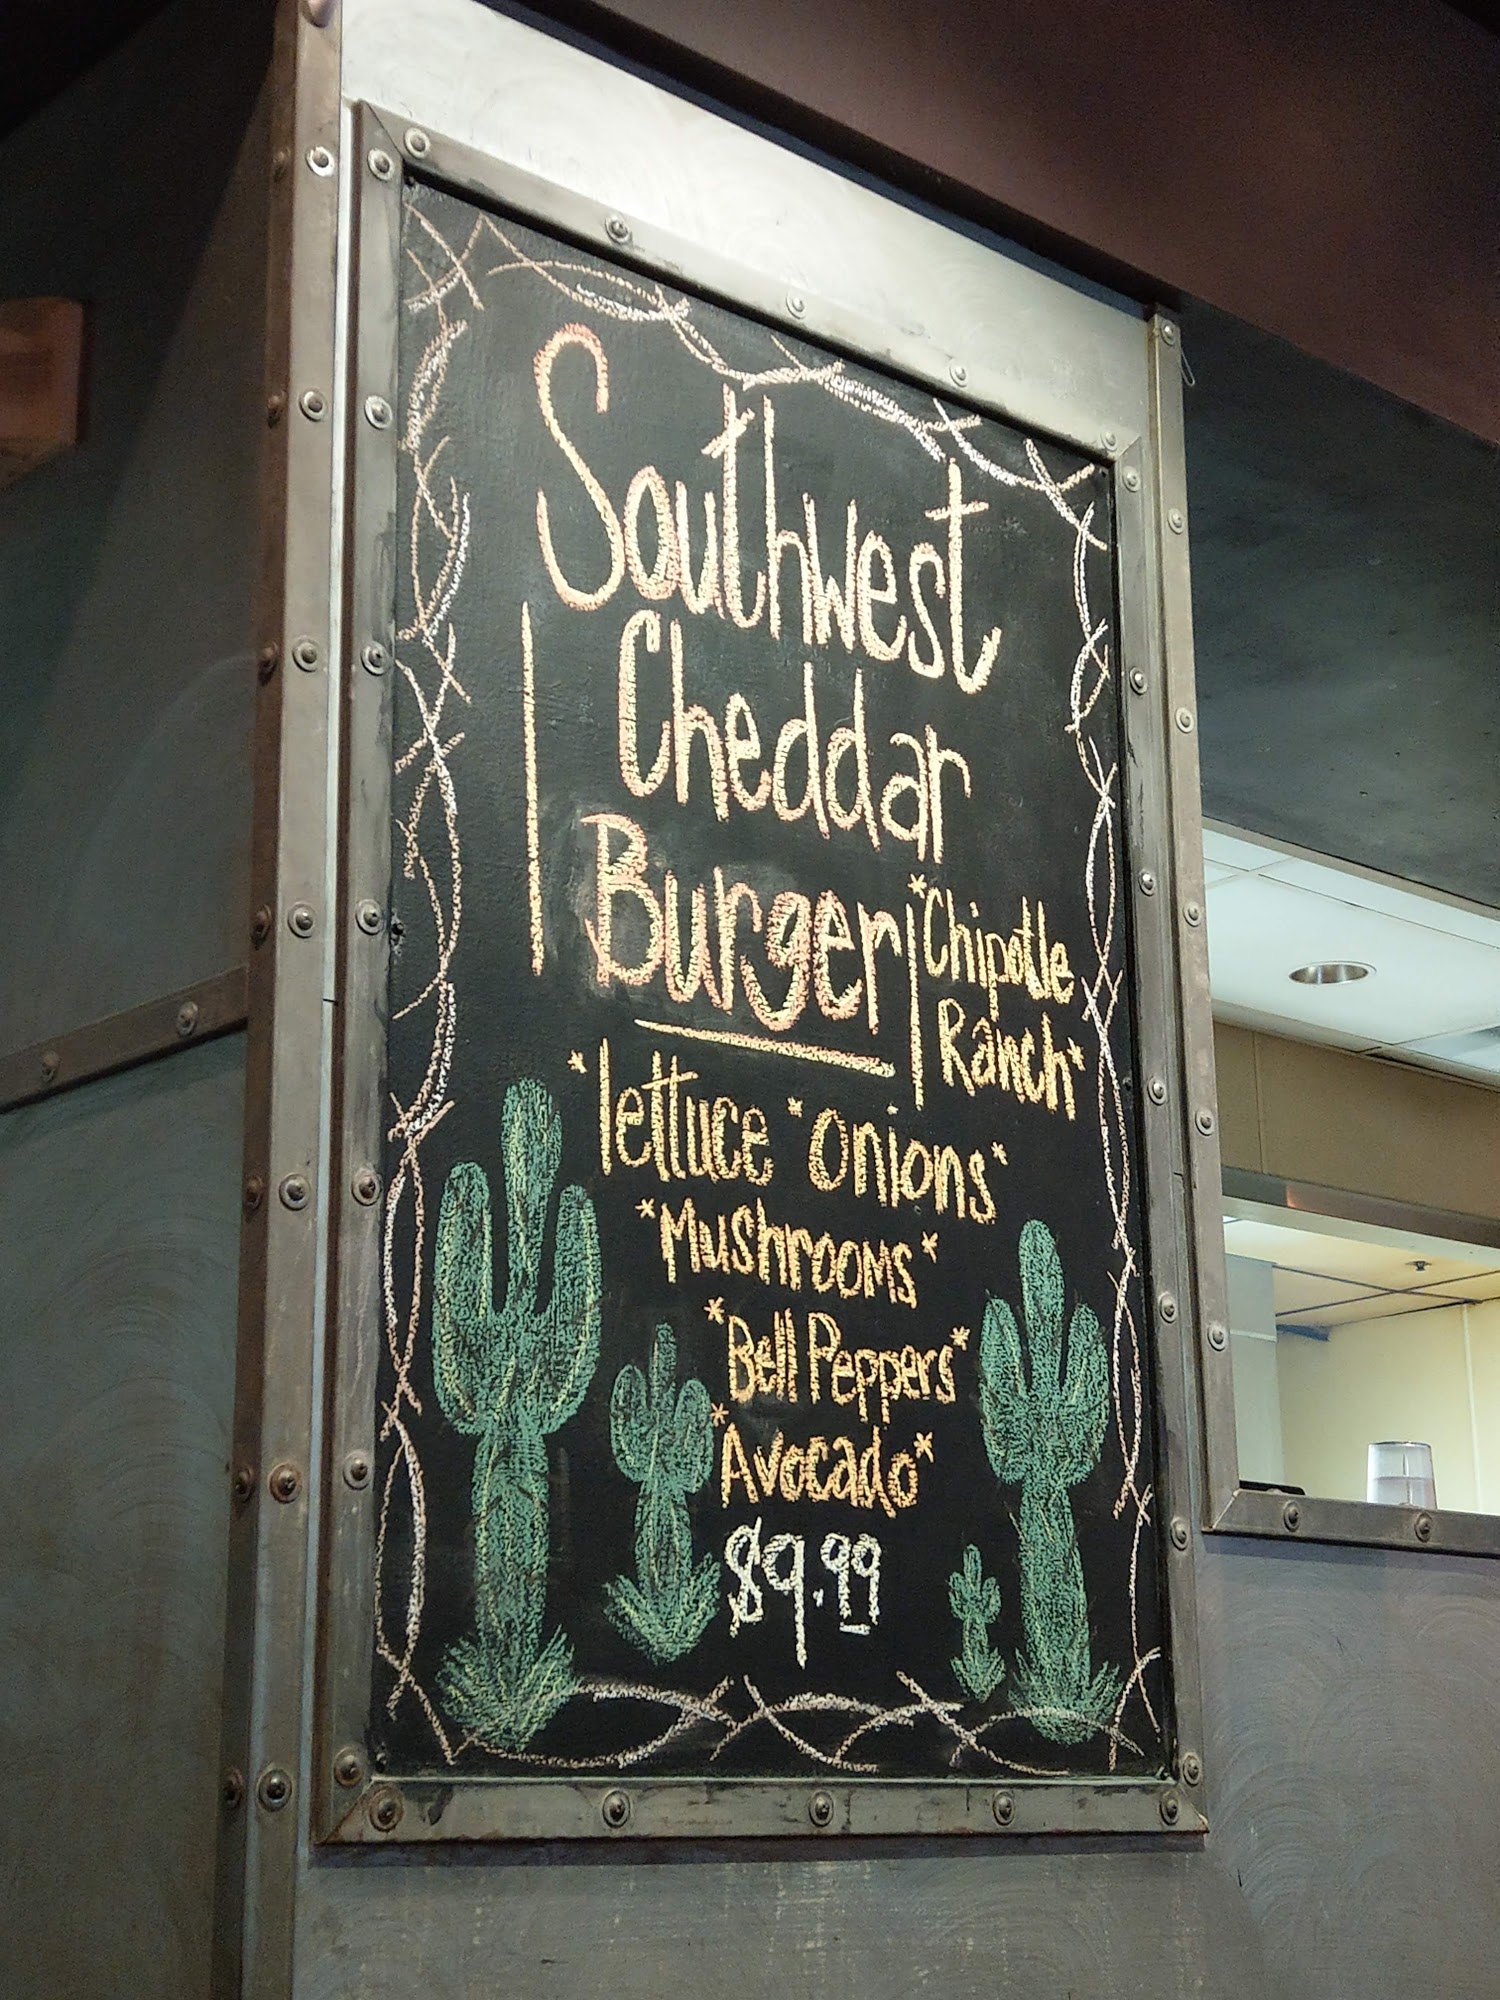 Southwest
Cheddar
Burger
*Chipotle
Ranch*
*lettuce *onions*
*Mushrooms*
*Bell Peppers*
*Avocado*
$9.99